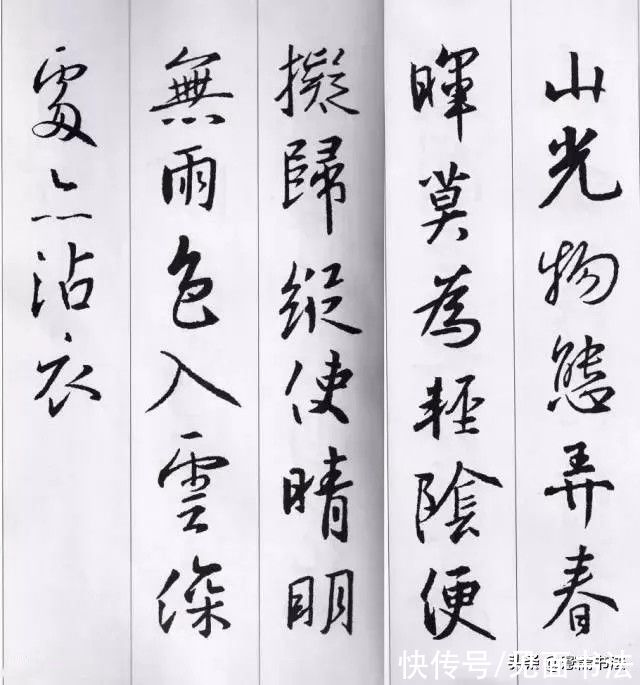 山光物態弄春
暉莫為輕陰便
擬歸縱使晴明
無雨色入雲深
處亦沾衣
快传号/